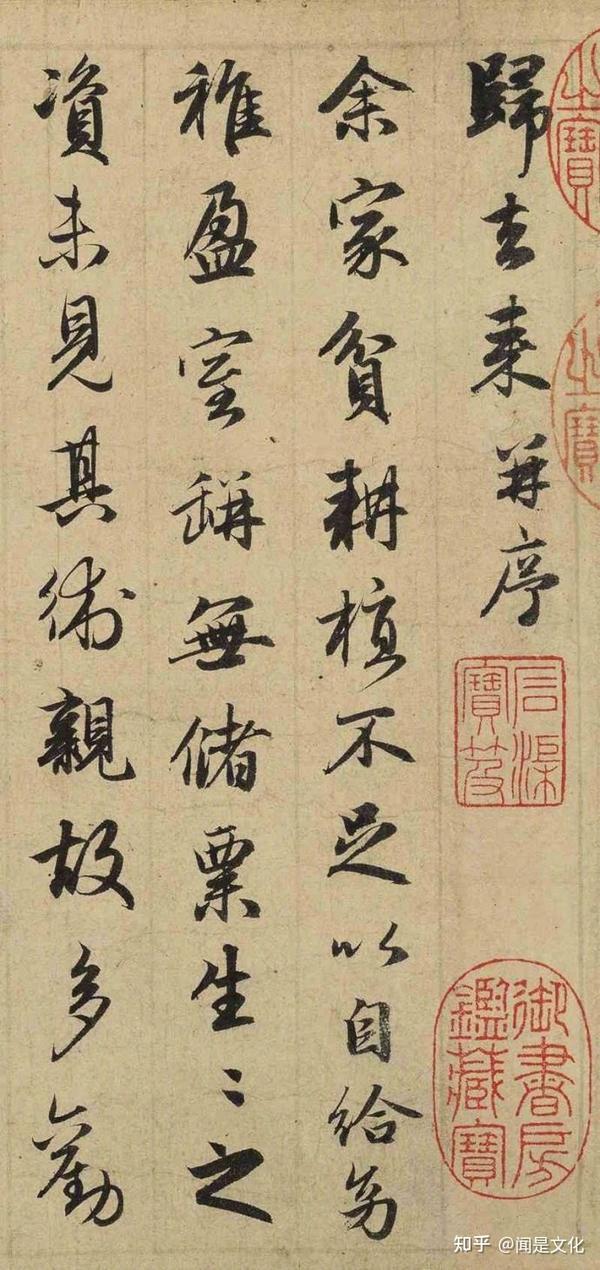 之寶
之寶
歸去来并序
石渠寶笈
御書房鑑藏寶
余家貧耕植不足以自給幼
稚盈室缾無儲粟生〻之
資未見其術親故多勸
知乎 @闻是文化